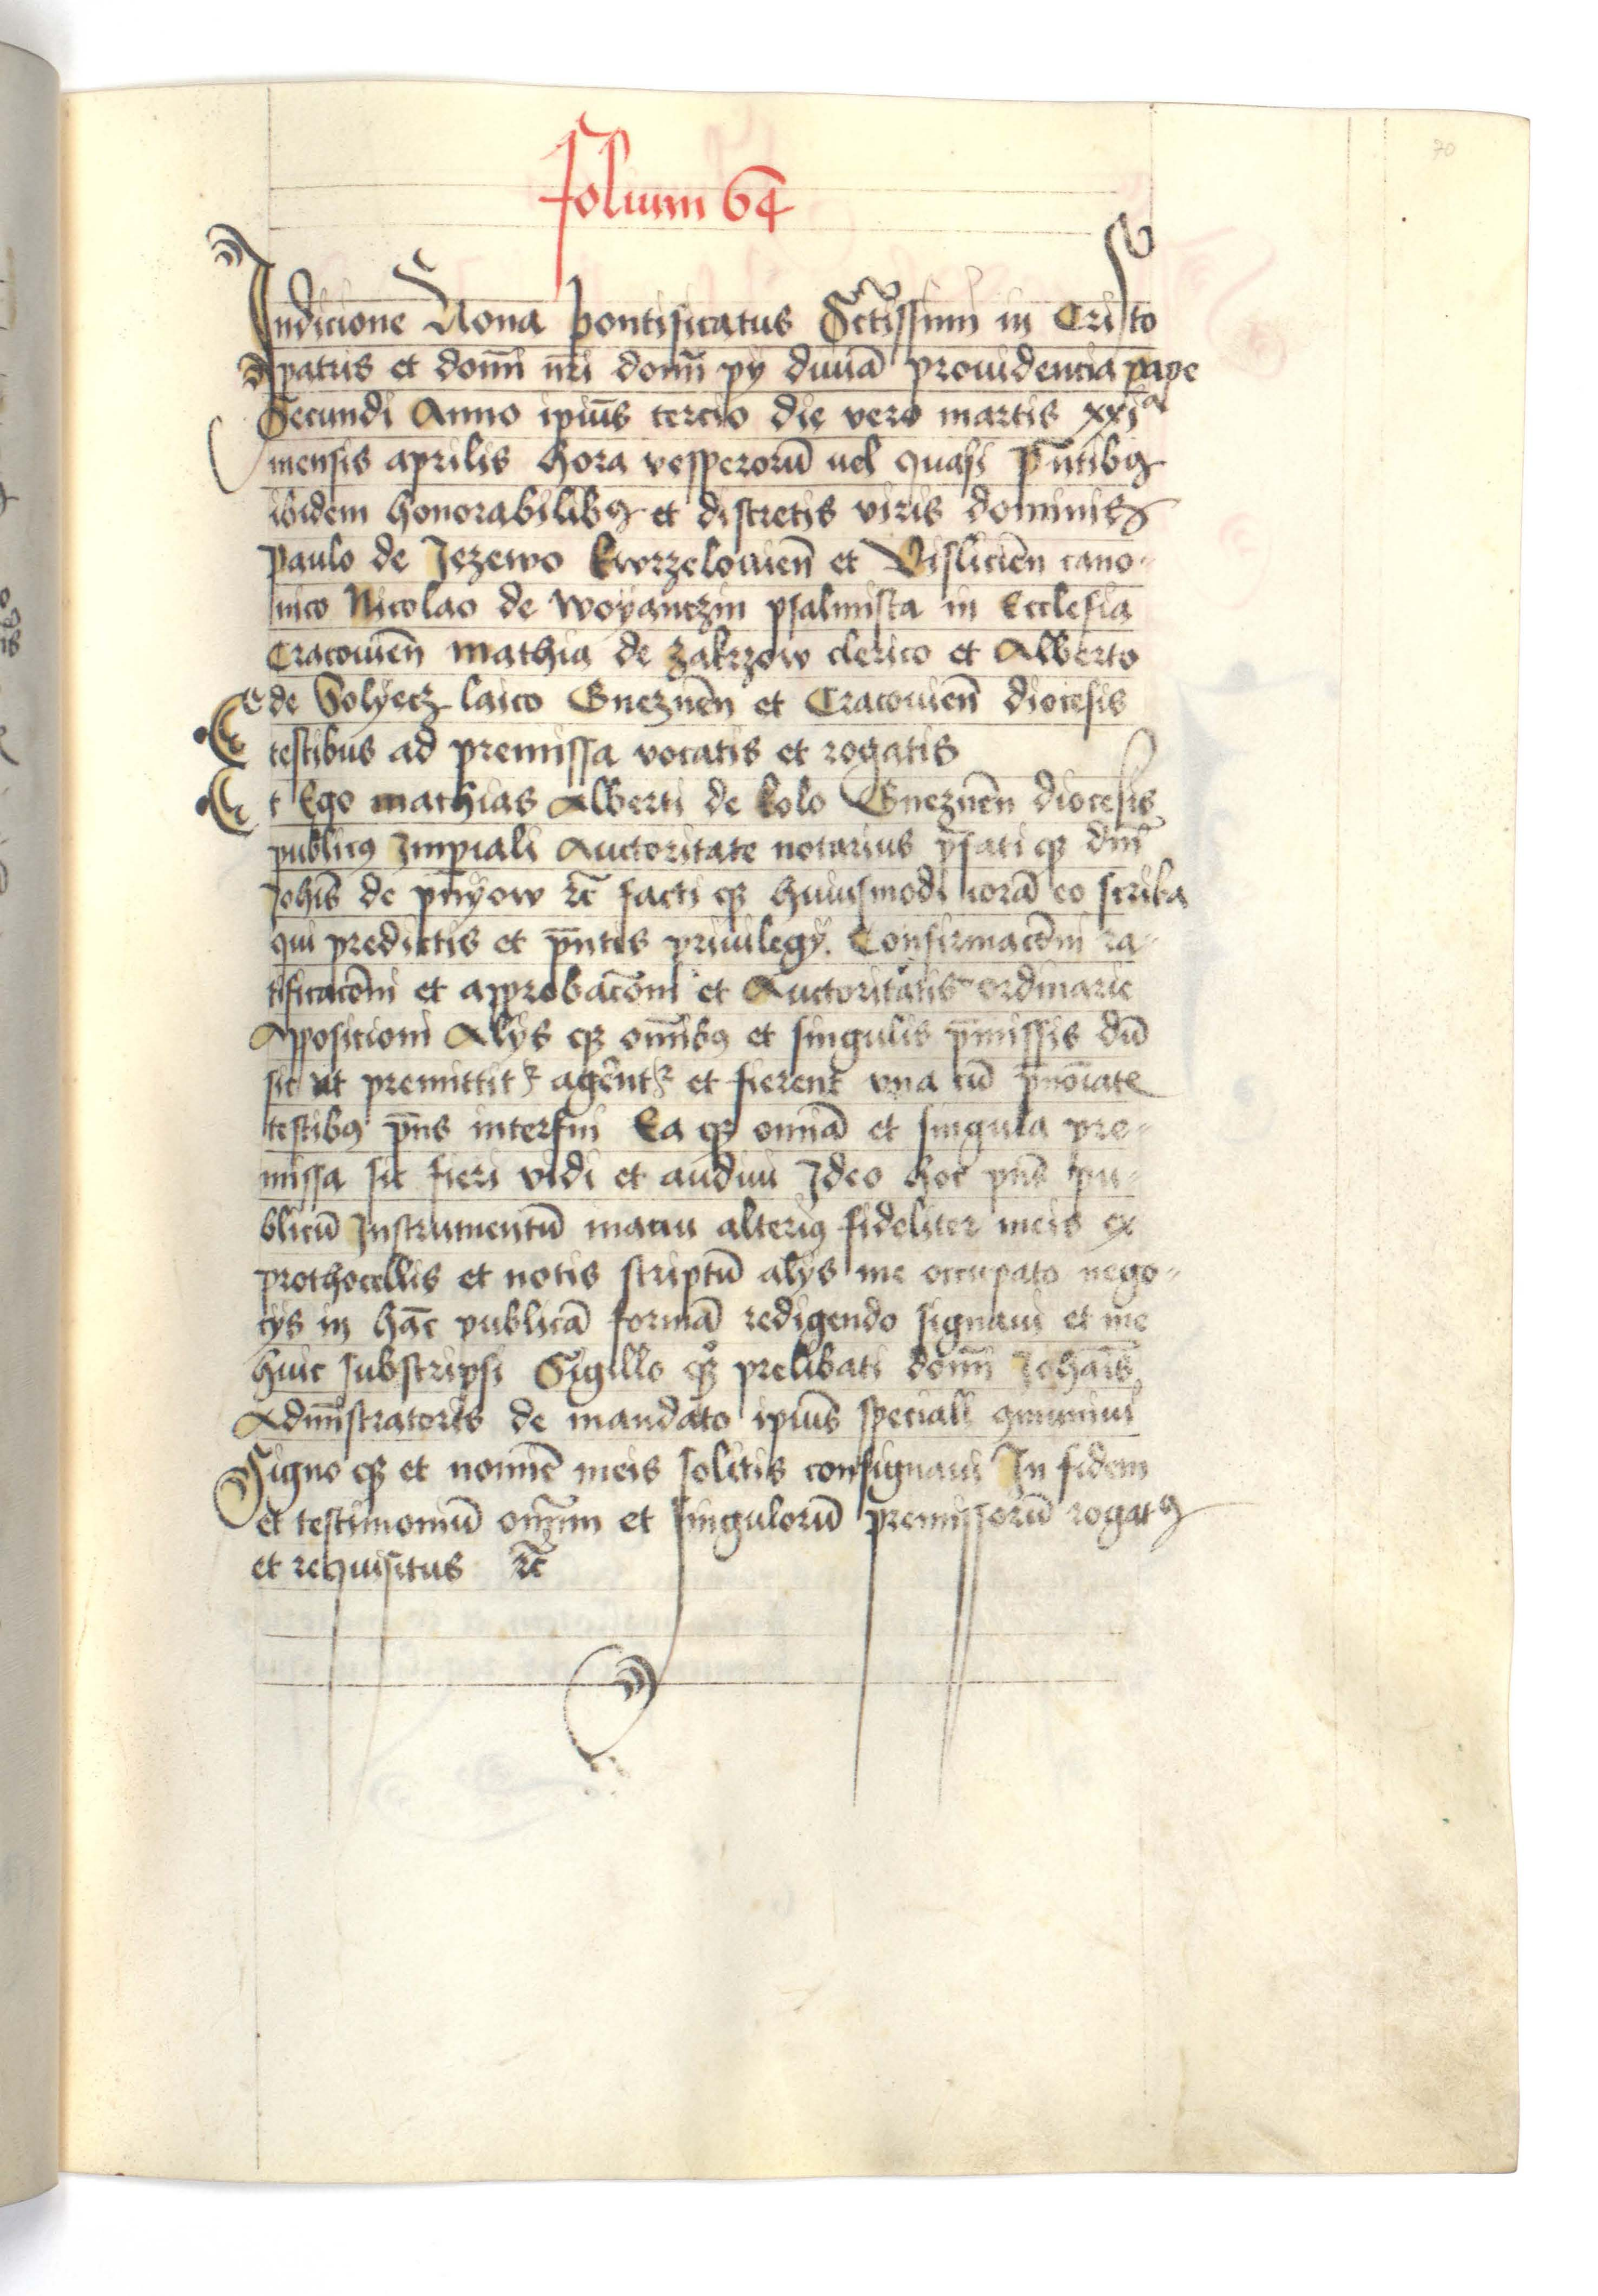 folium 64
70
Indicione Nona pontificatus Sctissimi in Cristo
patris et domi nri domi py diuiā prouidencia pape
Secundi Anno ipius tercio die vero martis xxi a
mensis aprilis hora vesperorū uel quasi pntibꝯ
ibidem honorabilibꝯ et discretis viris dominis
paulo de Jezewo kwrzelouien̄ et Vislicien̄ cano-
nico Nicolao de woyanczin psalmista in Ecclesia
Cracouien̄ mathia de zakrzow clerico et Alberto
de Solyecz laico Gneznen̄ et Cracouien̄ diocesis
testibus ad premissa vocatis et rogatis
Et Ego mathias Alberti de kolo Gneznen̄ diocesis
publicꝯ Imperiali Auctoritate notarius pfati qꝫ dni
Johis de pnyow ꝛc̄ facti qꝫ huiusmodi corā eo scriba
qui predictis et pntis priuilegy Confirmacōni ra-
tificacōni et approbacōni et Auctoritatis ordinarie
Apposicioni Alys qꝫ omibꝯ et singulis pmissis dū
sic ut premittitꝛ agerentꝛ et fierent vna cū pnoiate
testibꝯ pns interfui Ea qꝫ omia et singula pre-
missa sic fieri vidi et audiui Ideo hoc pns pu-
blicū Instrumentū manu alteriꝯ fideliter meis ex
prothocollis et notis scriptū alys me occupato nego-
cys in hāc publicā formā redigendo signaui et me
huic subscripsi Sigillo qꝫ prelibati domi Johais
Admistratoris de mandato ipius speciali ꝯmuniui
Signo qꝫ et nomie meis solitis consignaui In fidem
et testimoniū omium et singulorū premissorū rogatꝯ
et requisitus ꝛc̄